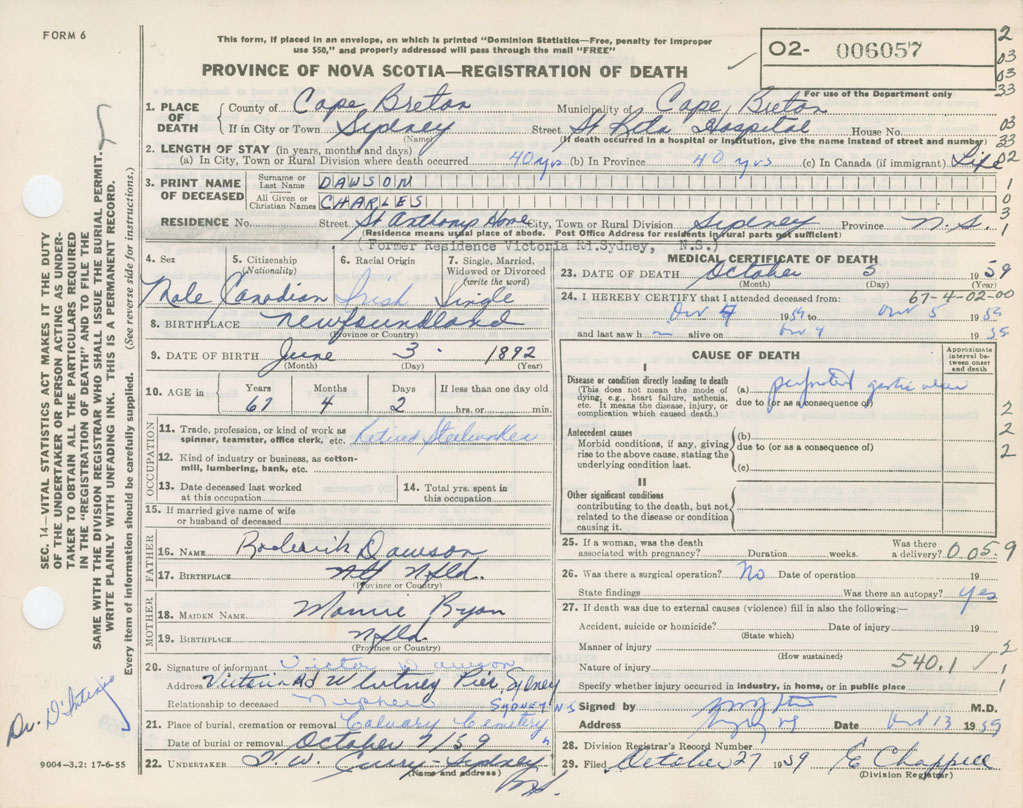 FORM 6
This form, if placed in an envelope, on which is printed "Dominion Statistics—Free, penalty for improper
use $50," and properly addressed will pass through the mail "FREE"
PROVINCE OF NOVA SCOTIA—REGISTRATION OF DEATH
O2- 006057
For use of the Department only
2
03
03
33
1. PLACE OF DEATH County of Cape Breton Municipality of Cape Breton
If in City or Town Sydney Street St Rita Hospital House No.
(Name) (If death occurred in a hospital or institution, give the name instead of street and number)
03
33
02
2. LENGTH OF STAY (in years, months and days)
(a) In City, Town or Rural Division where death occurred 40 yrs (b) In Province 40 yrs (c) In Canada (if immigrant) Life
3. PRINT NAME OF DECEASED Surname or Last Name DAWSON
All Given or Christian Names CHARLES
1
0
3
1
RESIDENCE No. Street St Anthonys Home City, Town or Rural Division Sydney Province N.S.
(Residence means usual place of abode. Post Office Address for residents in rural parts not sufficient)
(Former Residence Victoria Rd. Sydney, N.S.)
4. Sex 5. Citizenship (Nationality) 6. Racial Origin 7. Single, Married, Widowed or Divorced (write the word)
Male Canadian Irish Single
8. BIRTHPLACE Newfoundland
(Province or Country)
9. DATE OF BIRTH June 3 1892
(Month) (Day) (Year)
10. AGE in Years Months Days If less than one day old
67 4 2 hrs. or min.
OCCUPATION
11. Trade, profession, or kind of work as spinner, teamster, office clerk, etc. Retired Steelworker
12. Kind of industry or business, as cotton-mill, lumbering, bank, etc.
13. Date deceased last worked at this occupation
14. Total yrs. spent in this occupation
15. If married give name of wife or husband of deceased
FATHER
16. NAME Roderick Dawson
17. BIRTHPLACE Nfld.
(Province or Country)
MOTHER
18. MAIDEN NAME Mamie Ryan
19. BIRTHPLACE Nfld
(Province or Country)
20. Signature of informant Victor Dawson
Address Victoria Rd Whitney Pier, Sydney
Relationship to deceased Nephew SYDNEY N S
21. Place of burial, cremation or removal Calvary Cemetery
Date of burial or removal October 7/59
22. UNDERTAKER T. W. Curry - Sydney
(Name and address) N.S.
9004-3.2: 17-6-55
MEDICAL CERTIFICATE OF DEATH
23. DATE OF DEATH October 5 1959
(Month) (Day) (Year)
24. I HEREBY CERTIFY that I attended deceased from: 67-4-02-00
Oct 4 1959 to Oct 5 1959
and last saw h im alive on Oct 4 1959
CAUSE OF DEATH
Approximate interval between onset and death
I
Disease or condition directly leading to death
(This does not mean the mode of dying, e.g., heart failure, asthenia, etc. It means the disease, injury, or complication which caused death.)
(a) perforated gastric ulcer
due to (or as a consequence of)
Antecedent causes
Morbid conditions, if any, giving rise to the above cause, stating the underlying condition last.
(b)
due to (or as a consequence of)
(c)
2
2
2
II
Other significant conditions
contributing to the death, but not related to the disease or condition causing it.
25. If a woman, was the death associated with pregnancy? Duration weeks. Was there a delivery? 0 0 5 9
26. Was there a surgical operation? No Date of operation 19
State findings Was there an autopsy? Yes
27. If death was due to external causes (violence) fill in also the following:—
Accident, suicide or homicide? Date of injury 19
(State which)
Manner of injury
(How sustained)
Nature of injury 540.1 √
2
1
Specify whether injury occurred in industry, in home, or in public place 1
Signed by M.D.
Address Date Oct 13 1959
28. Division Registrar's Record Number
29. Filed October 27 1959 E Chappell
(Division Registrar)
SEC. 14—VITAL STATISTICS ACT MAKES IT THE DUTY
OF THE UNDERTAKER OR PERSON ACTING AS UNDER-
TAKER TO OBTAIN ALL THE PARTICULARS REQUIRED
IN THE "REGISTRATION OF DEATH" AND TO FILE THE
SAME WITH THE DIVISION REGISTRAR WHO SHALL ISSUE THE BURIAL PERMIT.
WRITE PLAINLY WITH UNFADING INK. THIS IS A PERMANENT RECORD.
Every item of information should be carefully supplied. (See reverse side for instructions.)
Dr. D'Intino